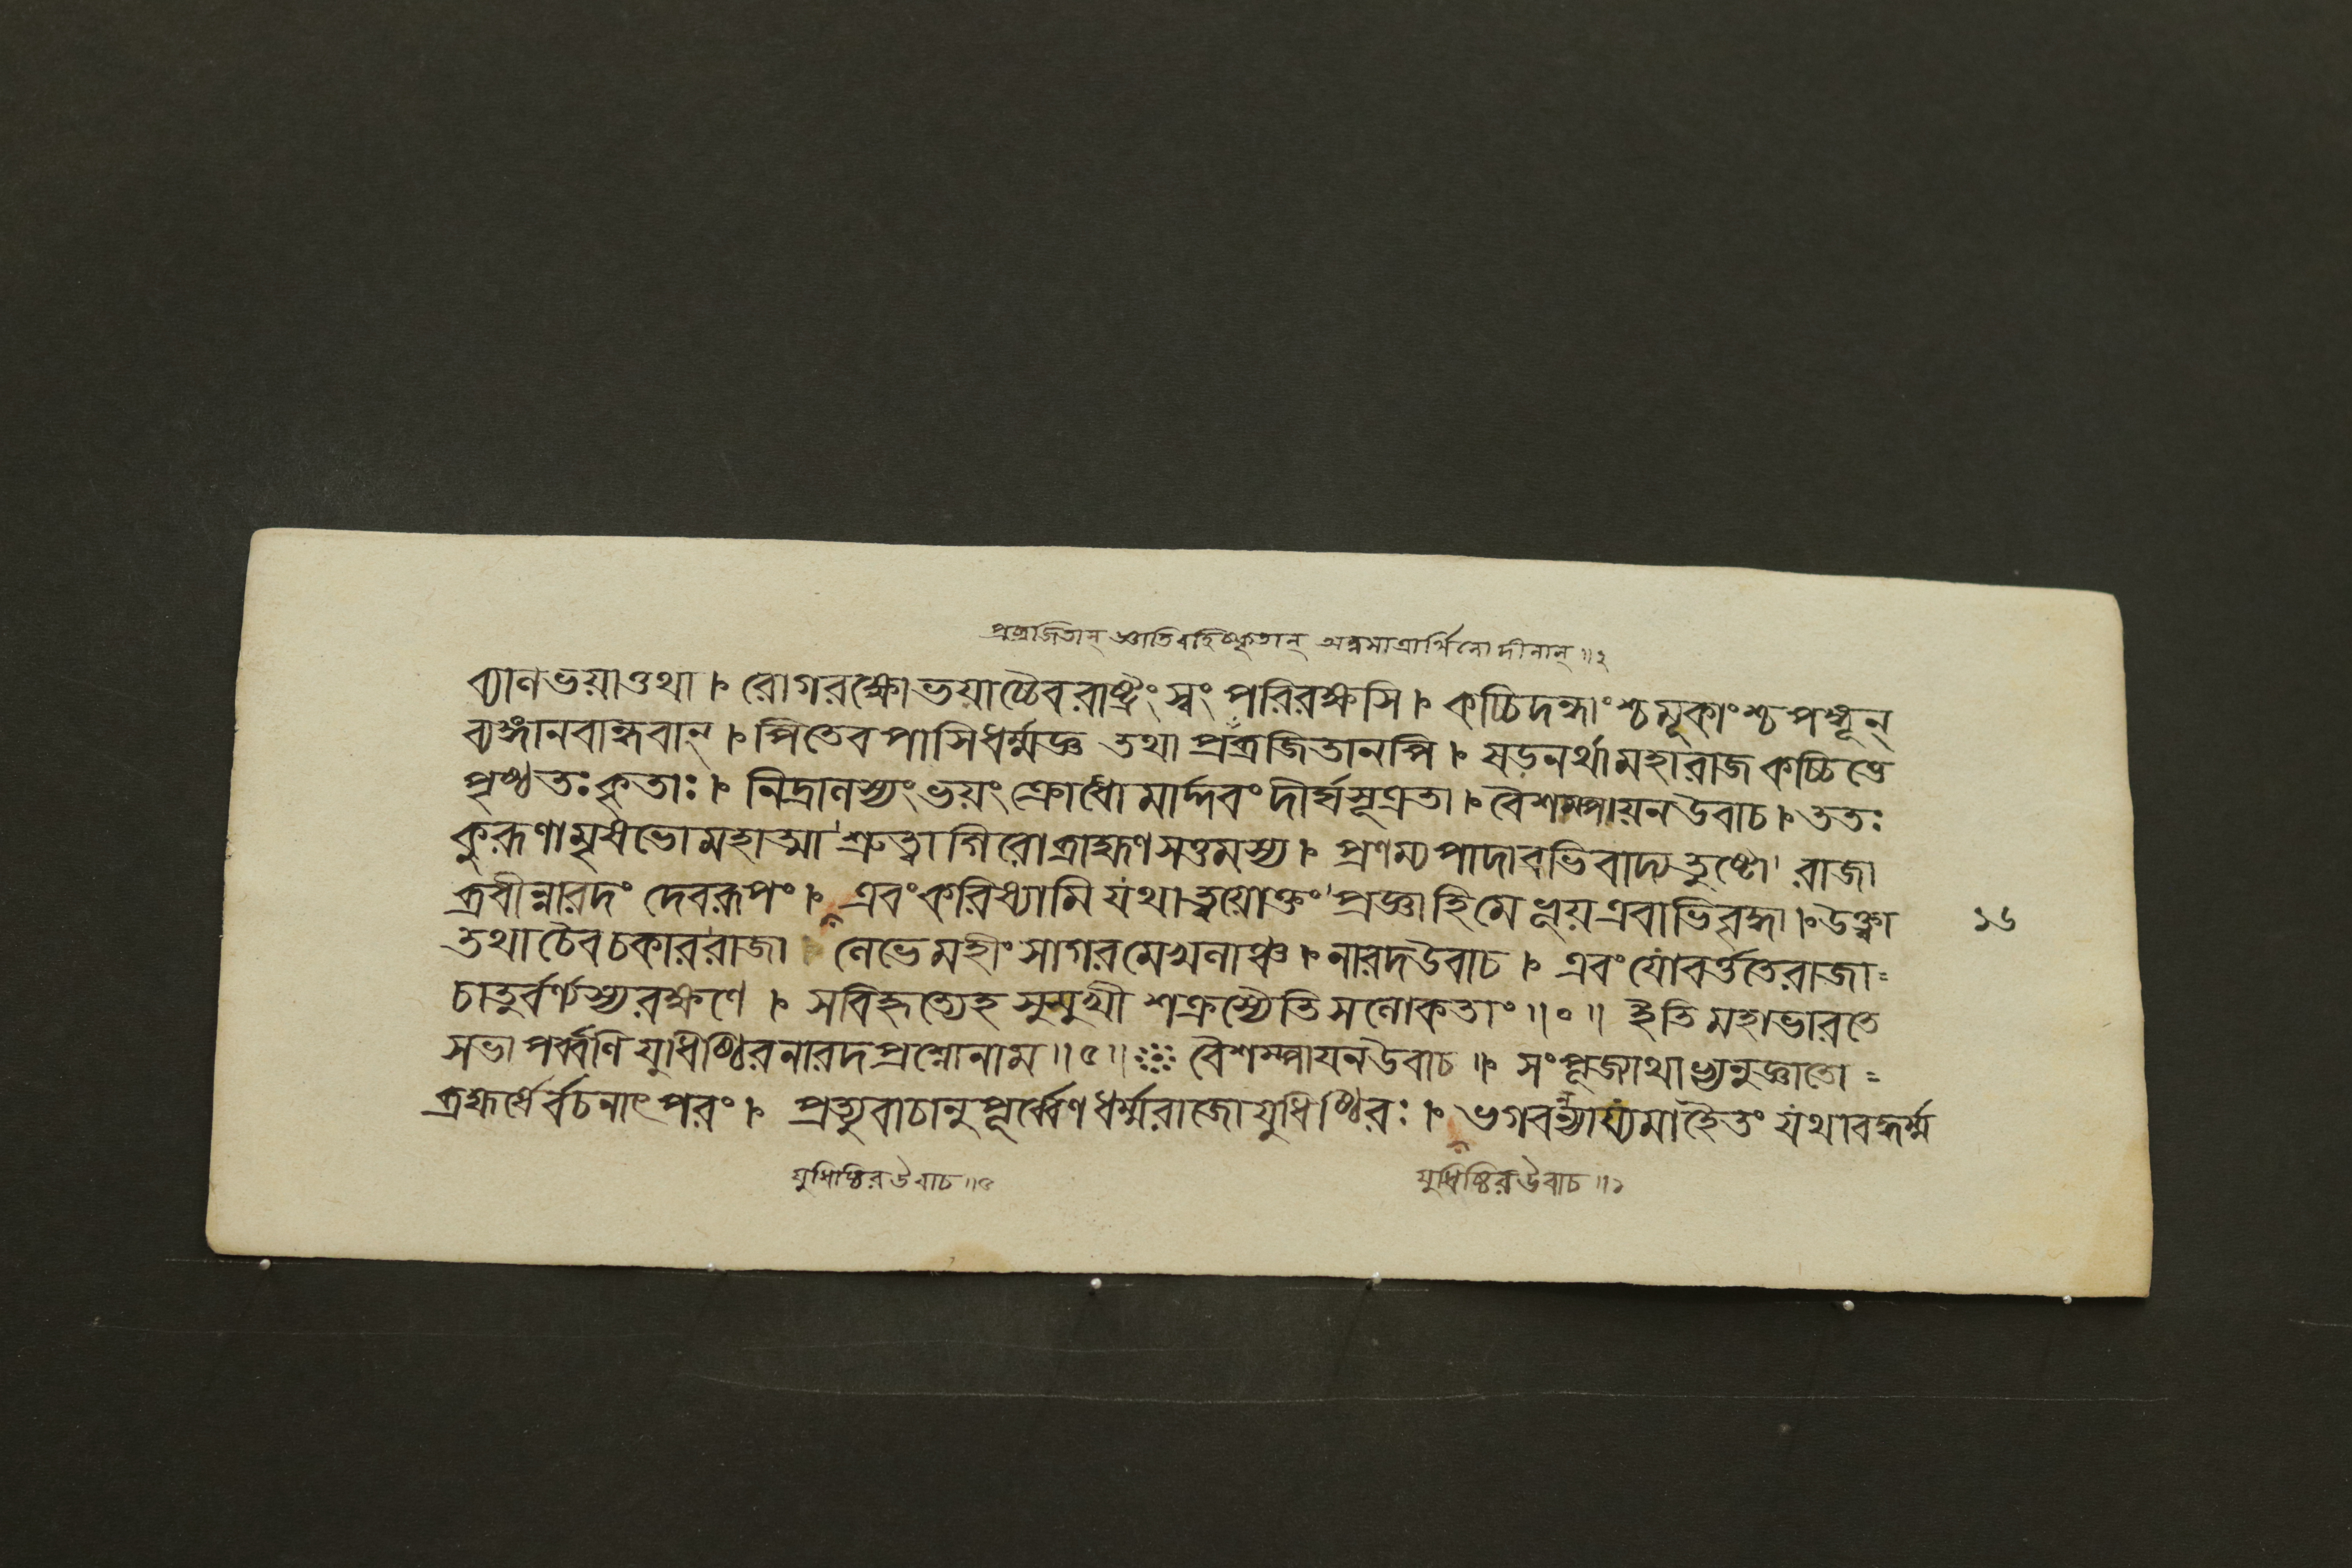 প্রব্রজিতান্ জ্ঞাতিবহিষ্কৃতান্ অন্নমাত্রার্থিনো দীনান্ ॥২
ব্যালভয়াত্তথা । রোগরক্ষোভয়াচ্চৈব রাষ্ট্রং স্বং পরিরক্ষসি । কচ্চিদন্ধাংশ্চ মূকাংশ্চ পঙ্গূন্
ব্যঙ্গানবান্ধবান্ । পিতেব পাসি ধর্ম্মজ্ঞ তথা প্রব্রজিতানপি । ষড়নর্থা মহারাজ কচ্চিত্তে
পৃষ্ঠতঃ কৃতাঃ । নিদ্রালস্যং ভয়ং ক্রোধো মার্দ্দবং দীর্ঘসূত্রতা । বৈশম্পায়ন উবাচ । ততঃ
কুরূণামৃষভো মহাত্মা শ্রুত্বা গিরো ব্রাহ্মণসত্তমস্য । প্রণম্য পাদাবভিবাদ্য তুষ্টো রাজা
ব্রবীন্নারদং দেবরূপং । এবং করিষ্যামি যথা ত্বয়োক্তং প্রজ্ঞা হি মে ভূয় এবাভিবৃদ্ধা । উক্ত্বা
তথা চৈব চকার রাজা লেভে মহীং সাগরমেখলাঞ্চ । নারদ উবাচ । এবং যো বর্ত্ততে রাজা =
১৬
চাতুর্বর্ণ্যস্য রক্ষণে । স বিহৃত্যেহ সুসুখী শক্রস্যৈতি সলোকতাং ॥০॥ ইতি মহাভারতে
সভাপর্ব্বণি যুধিষ্ঠিরনারদপ্রশ্নো নাম ॥৫॥ বৈশম্পায়ন উবাচ ॥ সংপূজ্যাথাভ্যনুজ্ঞাতো =
ব্রহ্মর্ষের্বচনাৎ পরং । প্রত্যুবাচানুপূর্ব্বেণ ধর্ম্মরাজো যুধিষ্ঠিরঃ । ভগবন্ন্যায্যমাহৈতং যথাবদ্ধর্ম্ম
যুধিষ্ঠির উবাচ ॥৫
যুধিষ্ঠির উবাচ ॥১